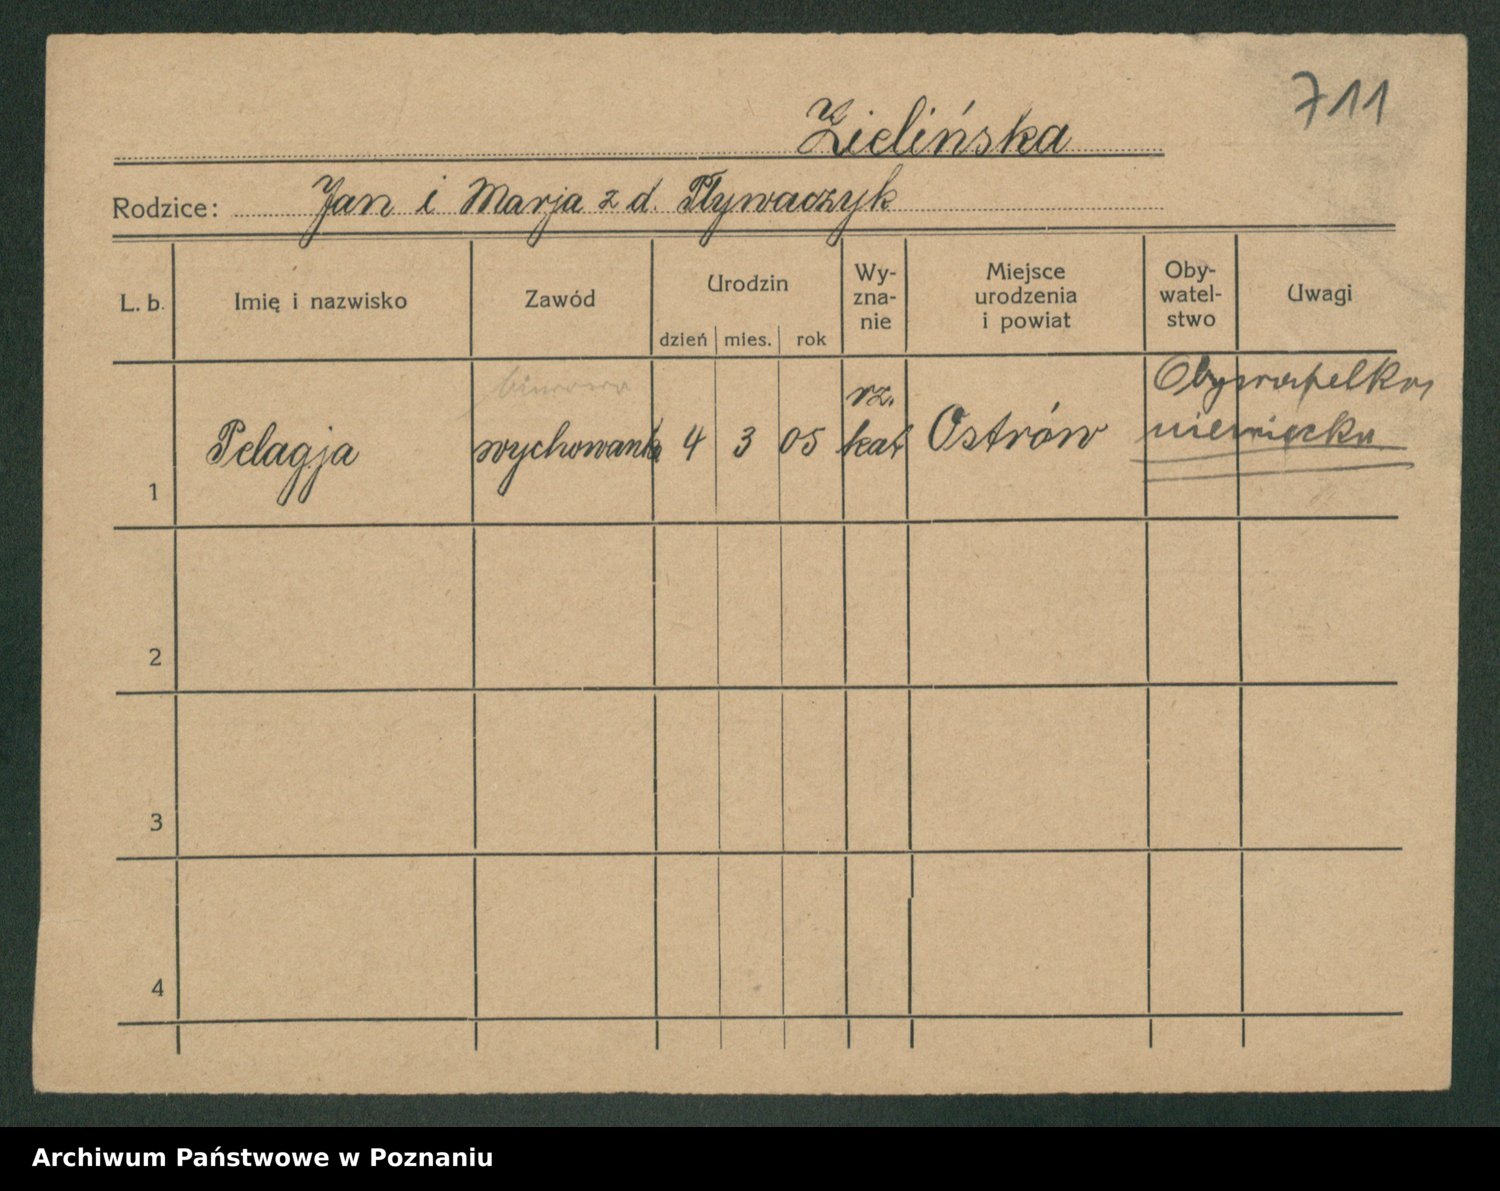 711
Zielińska
Rodzice: Jan i Marja z d. Pływaczyk
L. b. Imię i nazwisko Zawód Urodzin dzień mies. rok Wy-
zna-
nie Miejsce
urodzenia
i powiat Oby-
watel-
stwo Uwagi
1 Pelagja wychowanka 4 3 05 rz.
kat Ostrów Obywatelka
niemiecka
2
3
4
Archiwum Państwowe w Poznaniu